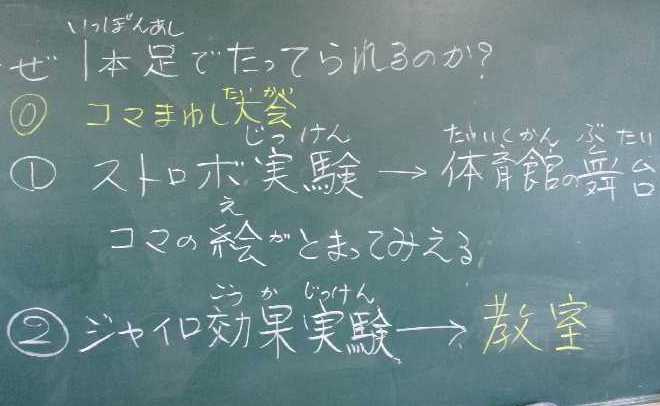 いっぽんあし
ぜ1本足でたってられるのか?
たいかい
⓪ コマまわし大会
じっけん たいいくかん ぶたい
① ストロボ実験→体育館の舞台
え
コマの絵がとまってみえる
こうか じっけん
② ジャイロ効果実験→教室